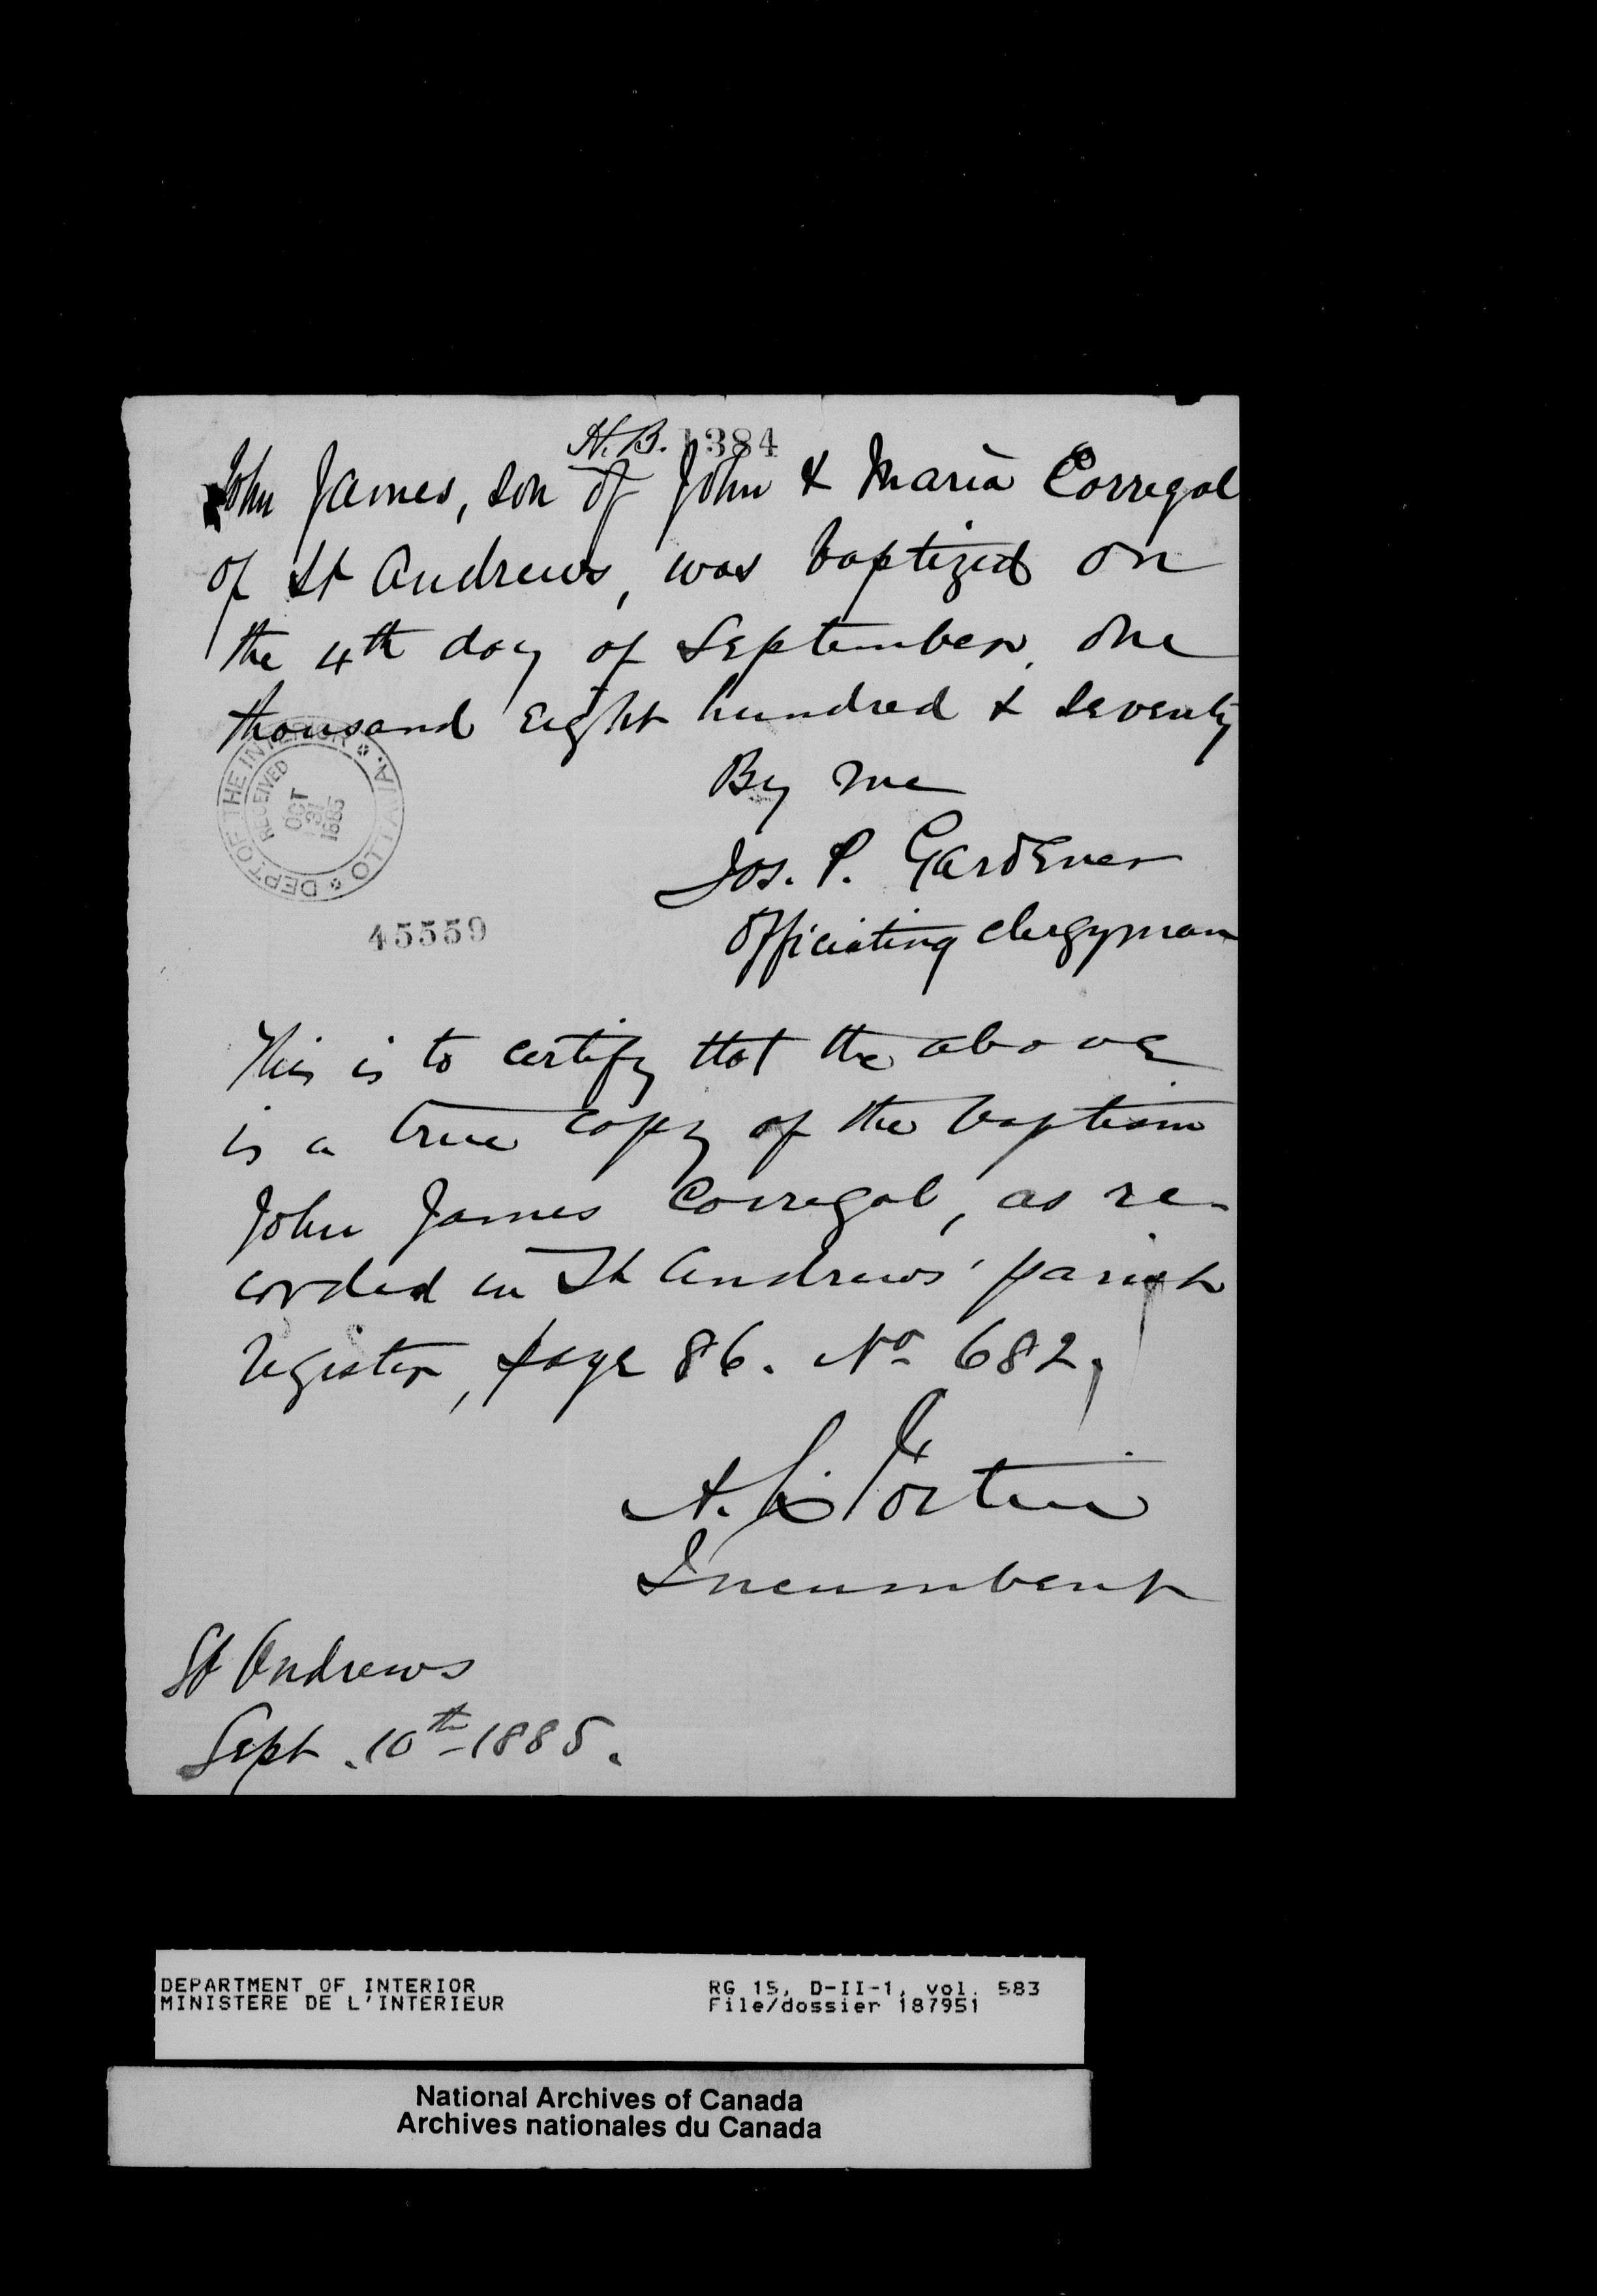 H.B. 1384
John James, son of John & Maria Corrigal
of St Andrews, was baptized on
the 4th day of September, one
thousand Eight hundred & seventy
By me
Jos. P. Gardener
Officiating clergyman
DEPT. OF THE INTERIOR OTTAWA.
RECEIVED
OCT
31
1885
45559
This is to certify that the above
is a true copy of the baptism
John James Corrigal, as re-
corded in St Andrews' parish
register, page 86. No 682,
A. L. Fortin
Incumbent
St Andrews
Sept. 10th 1885.
DEPARTMENT OF INTERIOR
MINISTERE DE L'INTERIEUR
RG 15, D-II-1, vol. 583
File/dossier 187951
National Archives of Canada
Archives nationales du Canada